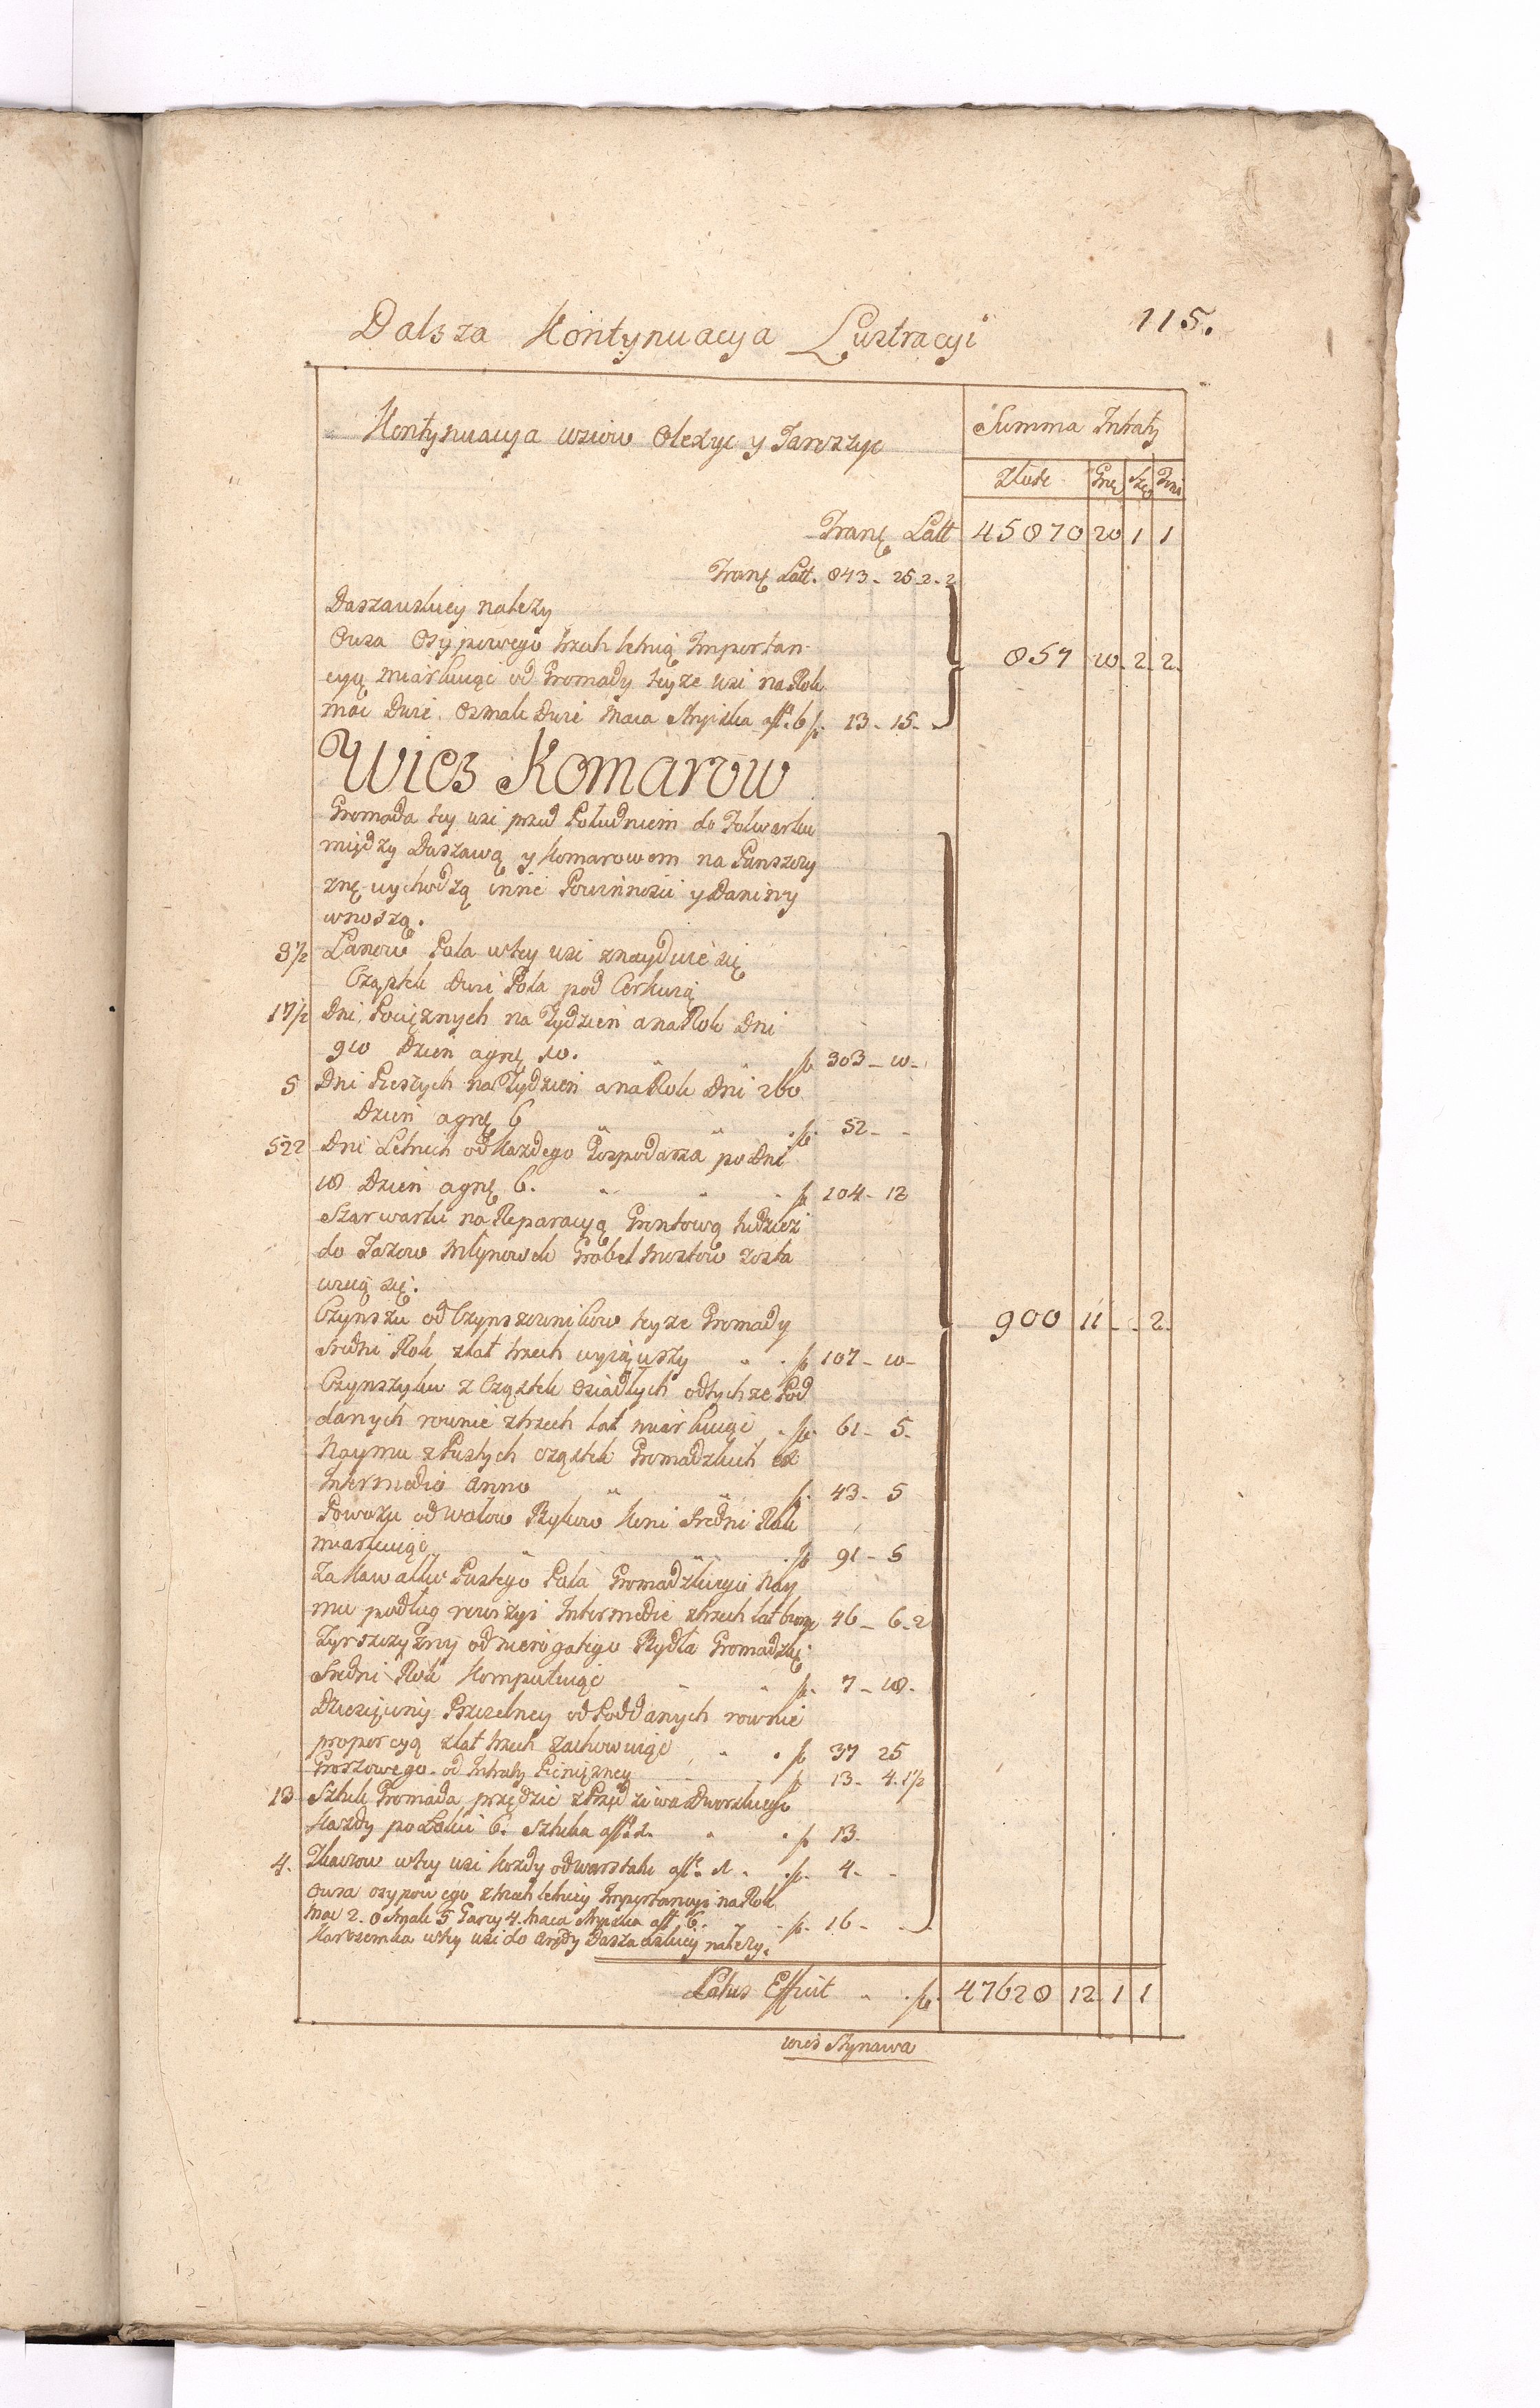 115.
Dalsza Kontynuacya Lustracyi
Kontynuacya wsiow Olexyc y Jaroszyc
Summa Intraty
Złote Grę Szę Dni
Tranſ. Latt 45870 20 1 1
Tranſ. Latt. 843 - 25. 2. 2
Daszauskiey nalezy
Owsa Osypowego trzech letnią Importan-
cyą miarkuiąc od Gromady teyze wsi na Rok
857 10. 2. 2.
mac Dwie Osmak Dwie Maca Stryiska aff. 6 f. 13 - 15 -
Wies Komarow
Gromada tey wsi przed Południem do Folwarku
między Daszawą y Komarowem na Panszczy
znę wychodzą inne Powinnosci y Daniny
wnoszą.
3½ Lanow Pola w tey wsi znayduie się
Cząstek dwie Pola pod Cerkwią
17½ Dni Pociąznych na Tydzien a na Rok Dni
910 Dzien a grę 10. f. 303 - 10 -
5 Dni Pieszych na Tydzien a na Rok Dni 260
Dzien a grę 6 f. 52 - -
522 Dni Letnich od Kazdego Gospodarza po Dni
18 Dzien a grę 6. f. 104 - 12
Szarwarki na Reparacyą Grontową tudziez
do Jazow Młynowek Grobel Mostow zosta
wuią się.
Czynszu od Czynszownikow teyze Gromady
900 11 - . 2.
Sredni Rok z lat trzech wyiąwszy f. 107 - 10 -
Czynszyku z Cząstek Osiadłych od tychze Pod
danych rownie z trzech lat miarkuiąc f. 61 - 5 -
Naymu z Pustych cząstek Gromadzkich ex
Intermedio Anno f. 43 - 5
Powozu od Wołow Bykow Koni Sredni Rok
miarkuiąc f. 91 - 5
Za Kawałki Pustego Pola Gromadzkiego Nay
mu podług rewizyi Intermedie z trzech lat biorąc 46 - 6 - 2
Zyrszczyzny od nierogatego Bydła Gromadzkę
Sredni Rok Komputuiąc f. 7 - 18 -
Dziesięciny Pszczelney od Poddanych rownie
proporcyą z lat trzech zachowuiąc f. 37 25
Groszowego od Intraty Pienięzney f. 13 - 4. 1½
13 Sztuk Gromada przędzie z Przędziwa Dworskiego
Kazdy po Łokci 6. Sztuka aff. 1. f. 13.
4. Tkaczow w tey wsi kozdy od warstatu aff. 1 f. 4 - -
Owsa osypowego z trzech letniey Importancyi na Rok
Mac 2. Osmak 5 Garcy 4. Maca Stryiska aff. 6. f. 16 - -
Karczemka w tey wsi do arędy Daszauskiey nalezy.
Latus Efficit f. 47628 12 1 1
wies Stynawa